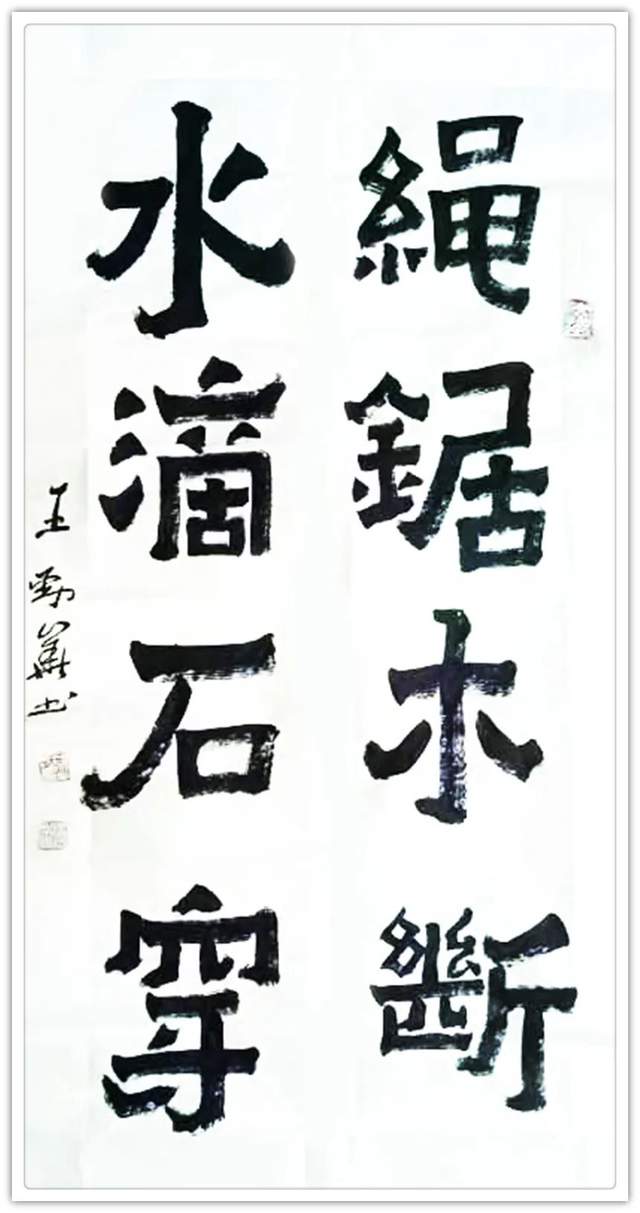 繩鋸木斷
水滴石穿
王勁華书